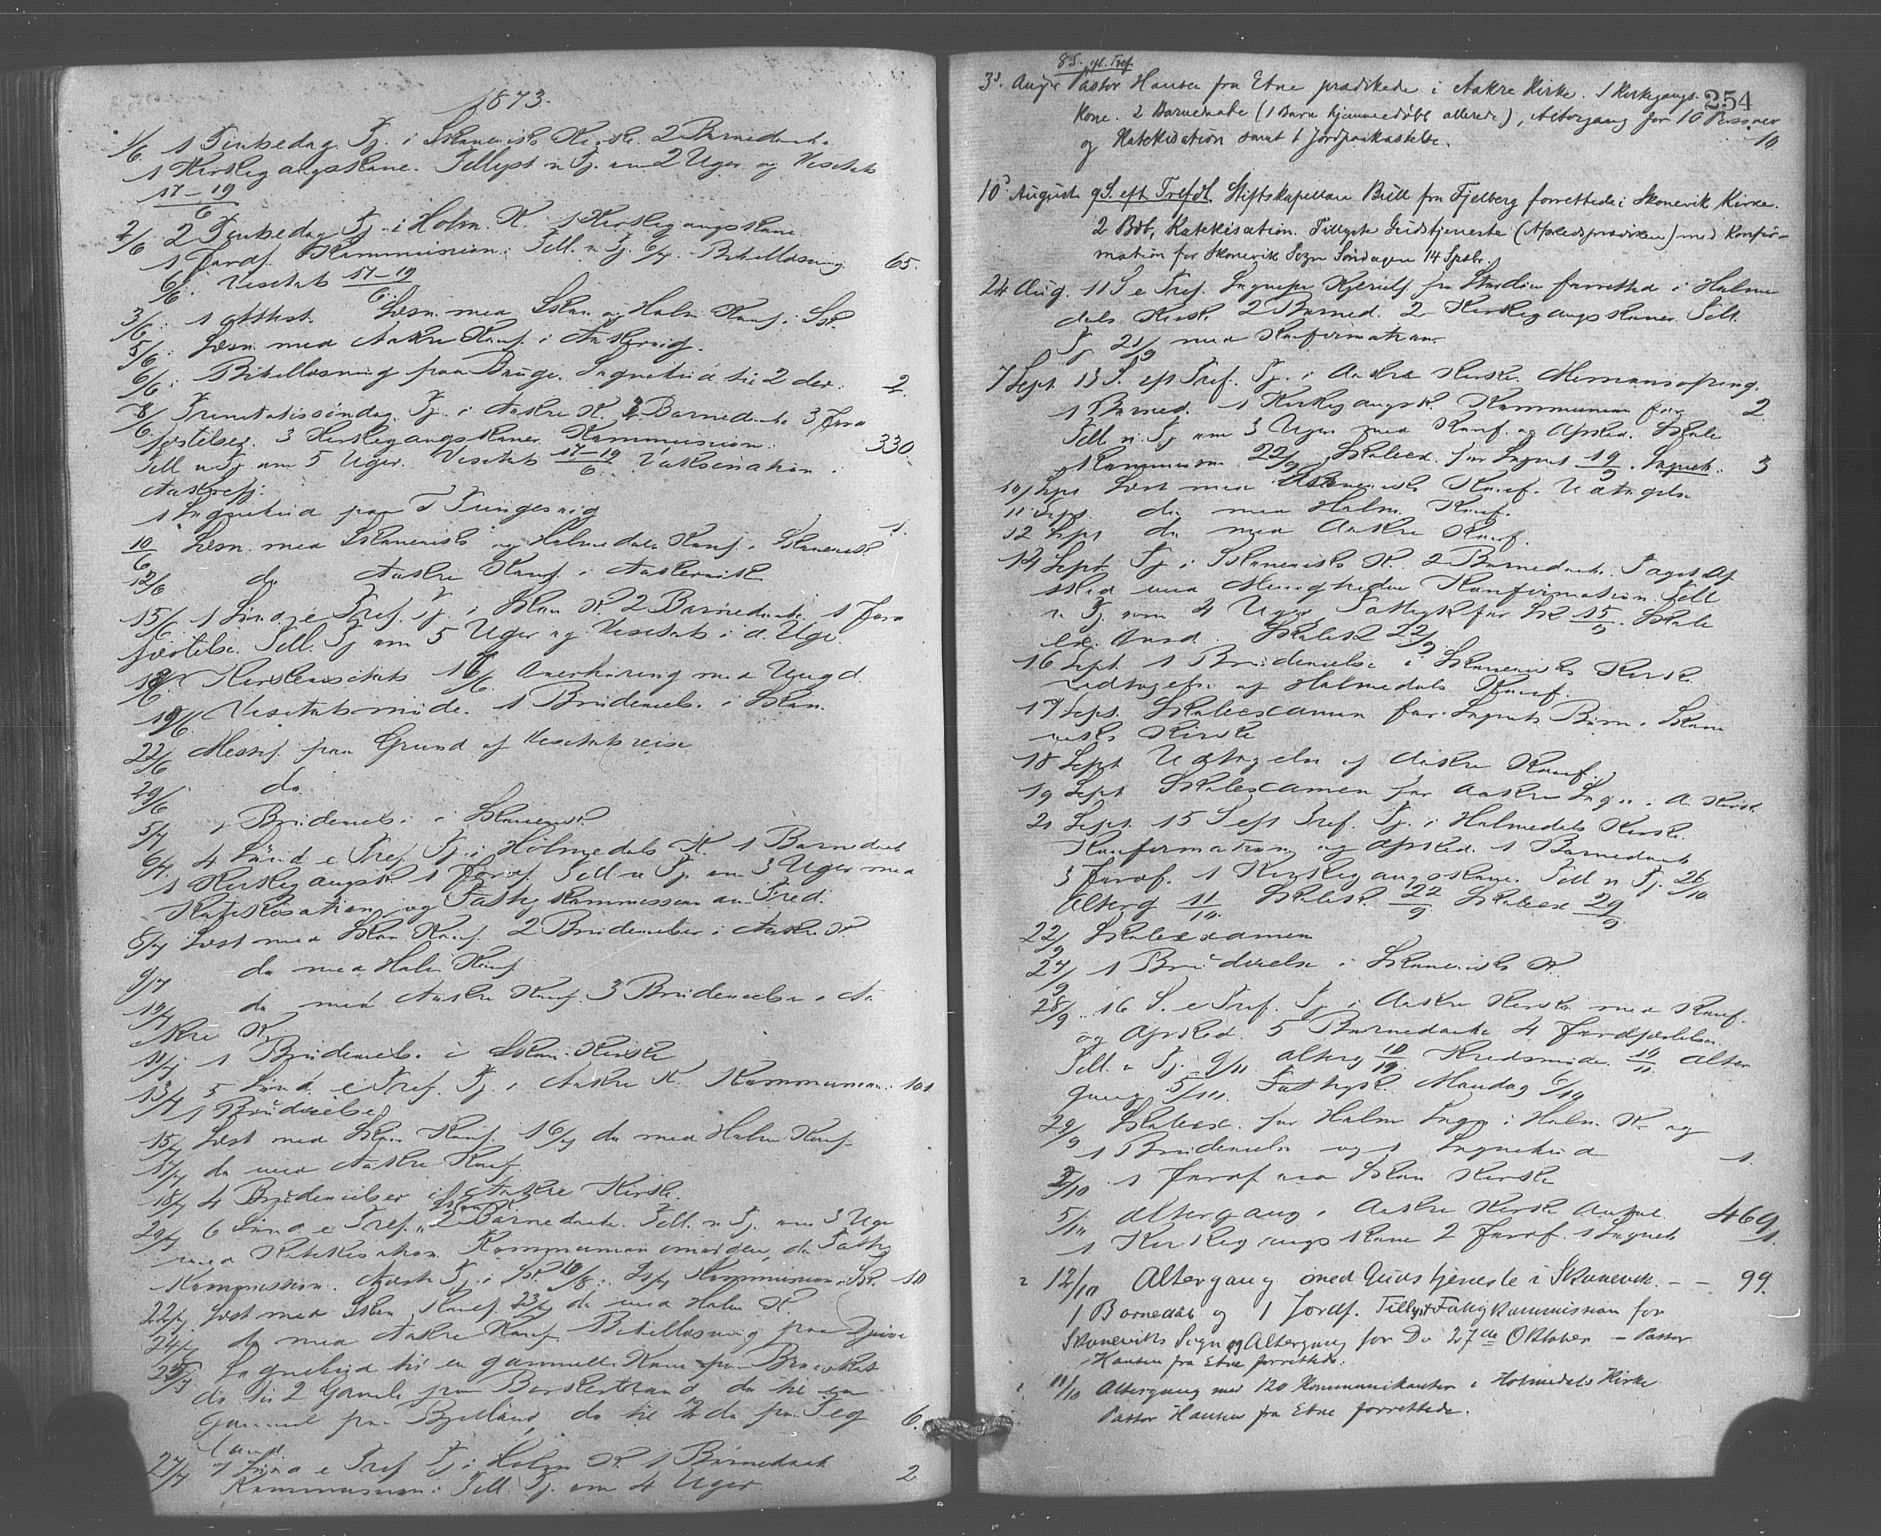 1873.
1/6. 1 Pinsedag Tj. i Skaanevik Kirke. 2 Barnedaab.
1 Kirkegangskone. Tillyst n Tj. om 2 Uger og Visitats
17–19
6
2/6. 2 Pinsedag Tj. i Holm. K. 1 Kirkegangskone.
1 Jordf. Kommunion. Till. n. Tj. 6/7. Bibellæsning 65.
6/6. Visitats 17–19
6
3/6. 1 Attest. Læsn. med Skan og Holm Konf. i Sk.
5/6. Læsn. med Aakre Konf. i Aakrevig.
6/6. Bibellæsning paa Hauge. Sognebud til 2 der. 2.
8/6 Trinitatissøndag. Tj. i Aakre K. 2 Barnedaab 3 Jord
fæstelser. 3 Kirkegangskoner. Kommunion. 330.
Till n Tj om 5 Uger. Visitats 17–19
6 Vaksination i
Aakrefj.
1 Sognebud paa 1.
10/6 Læsn. med Skanevik og Holmedals Konf. i Skanevik
12/6 do Aakre Konf. i Aakrevik
15/6 1 Sønd. e Tref. Tj. i Skan K. 2 Barnedaab. 1 Jord
fæstelse. Till. Tj om 5 Uger og Visitats i d. Uge
18/6. Kirkevisitats Overhøring med Ungd.
19/6. Visitatsmøde. 1 Brudevielse i Skan.
22/6 Messef. paa Grund af Visitatsreise
29/6 do
5/7 1 Brudevielse i Skanevik
6/7 4 Sønd e Tref. Tj. i Holmedals K. 1 Barnedaab
1 Kirkegangsk. 1 Jordf. Till n Tj. om 3 Uger med
Katekisation og Fattigkommission om Fred.
8/7 Læst med Skan Konf. 2 Brudevielser i Aakre K.
9/7 do med Holm Konf.
10/7 do med Aakre Konf. 3 Brudevielse i Aa
kre K.
11/7 1 Brudevielse i Skan. Kirke
13/7 5 Sønd. e Tref. Tj. i Aakre K. Kommunion. 101
1 Brudevielse
15/7 Læst med Skan Konf. 16/7 do med Holm Konf.
17/7 do med Aakre Konf.
18/7 4 Brudevielser i Aakre Kirke.
20/7 6 Sønd e Tref. i Skan K. 2 Barnedaab. Till. n Tj. om 3 Uger
med Katekisation. Kommunion omi da Fattig
Kommission. Næste Tj. i Sk. Kommunion i Sk. 10
22/7 Læst med Skan Konf. 23/7 do med Holm K.
24/7 do med Aakre Konf. Bibellæsning paa
25/7 Sognebud til en gammel Kone paa
do til 2 Gamle paa Børkestrand, do til en
Gammel paa Bjelland, do til do paa 6.
land
27/7 7 Sønd e Tref Tj i Holm K. 1 Barnedaab 2
Kommunion. Till. Tj. om 4 Uger.
254
8 S. eft. Tref.
3. Aug. Pastor Hansen fra Etne prædikede i Aakre Kirke. 1 Kirkegangs-
kone. 2 Barnedaabe (1 Barn hjemmedøbt allerede), Altergang for 10 Personer
og Katekisation samt 1 Jordpaakastelse. 10.
10 August 9 S. eft Trefdh Stiftskapellan Bull fra Fjelberg forrettede i Skonevik Kirke.
2 Bdb, Katekisation. Tillyste Gudstjeneste (Afskedsprædiken) med Konfir-
mation for Skonevik Sogn Søndagen 14 Septbr.
24 Aug. 11 S e Tref. Sognepr Kjerulf fra Stordøen forrettede i Holme
dals Kirke 2 Barned. 2 Kirkegangskoner. Till.
Tj 21/9 med Konfirmation.
7 Sept 13 S. eft Tref. Tj. i Aakre Kirke. Missionsofring.
1 Barned. 1 Kirkegangsk. Kommunion for 2.
Till n. Tj om 3 Uger med Konf. og Afsked. Skole
kommission 22/9 Skoleex. for Sognet 19/9. Sogneb. 3
10/ Sept Læst med Skanevik Konf. Udtagelse
11 Sept. do med Holm. Konf.
12 Sept do med Aakre Konf.
14 Sept. Tj i Skanevik K. 2 Barnedaab. Taget Af
sked med Menigheden Konfirmation. Till
n Tj om 4 Uger. Fattigk for Sk 15/9. Skole
ex. Skolek 22/9
16 Sept. 1 Brudevielse i Skanevik Kirke.
Udtagelse af Holmedals Konf.
17 Sept. Skoleexamen for Sognets Børn i Skane
viks Kirke
18 Sept Udtagelse af Aakre Konf.
19 Sept Skoleexamen for Aakre Sogn i A Kirke
21 Sept. 15 S eft Tref. Tj. i Holmedals Kirke.
Konfirmation og Afsked. 1 Barnedaab
3 Jordf. 1 Kirkegangskone. Till n Tj. 26/10
Alterg 11/10. Skolek. 22/9 Skoleex 29/9
22/9 Skoleexamen
27/9 1 Brudevielse i Skanevik K.
28/9. 16 S. e Tref. Tj i Aakre Kirke med Konf.
og Afsked. 5 Barnedaabe 4 Jordfæstelser.
Till. n Tj. 9/11 Alterg Kredsmøde Alter
gang 5/10. Fattigk. Mandag 6/10
29/9 Skoleex. for Holm Sogn i Holm. K. og
1 Brudevielse og 1 Sognebud 1.
3/10 1 Jordf ved Skan Kirke
5/10 Altergang i Aakre Kirke Antal 469
1 Kirkegangskone 2 Jordf. 1 Sogneb 1.
12/10 Altergang med Gudstjeneste i Skonevik. – – 99.
1 Barnedåb og 1 Jordf. Tillyst Fattigkommission for
Skoneviks Sogn og Altergang for D. 27de Oktober – Pastor
Hansen fra Etne forrettede.
11/10 Altergang med 120 Kommunikanter i Holmedals Kirke
Pastor Hansen fra Etne forrettede.